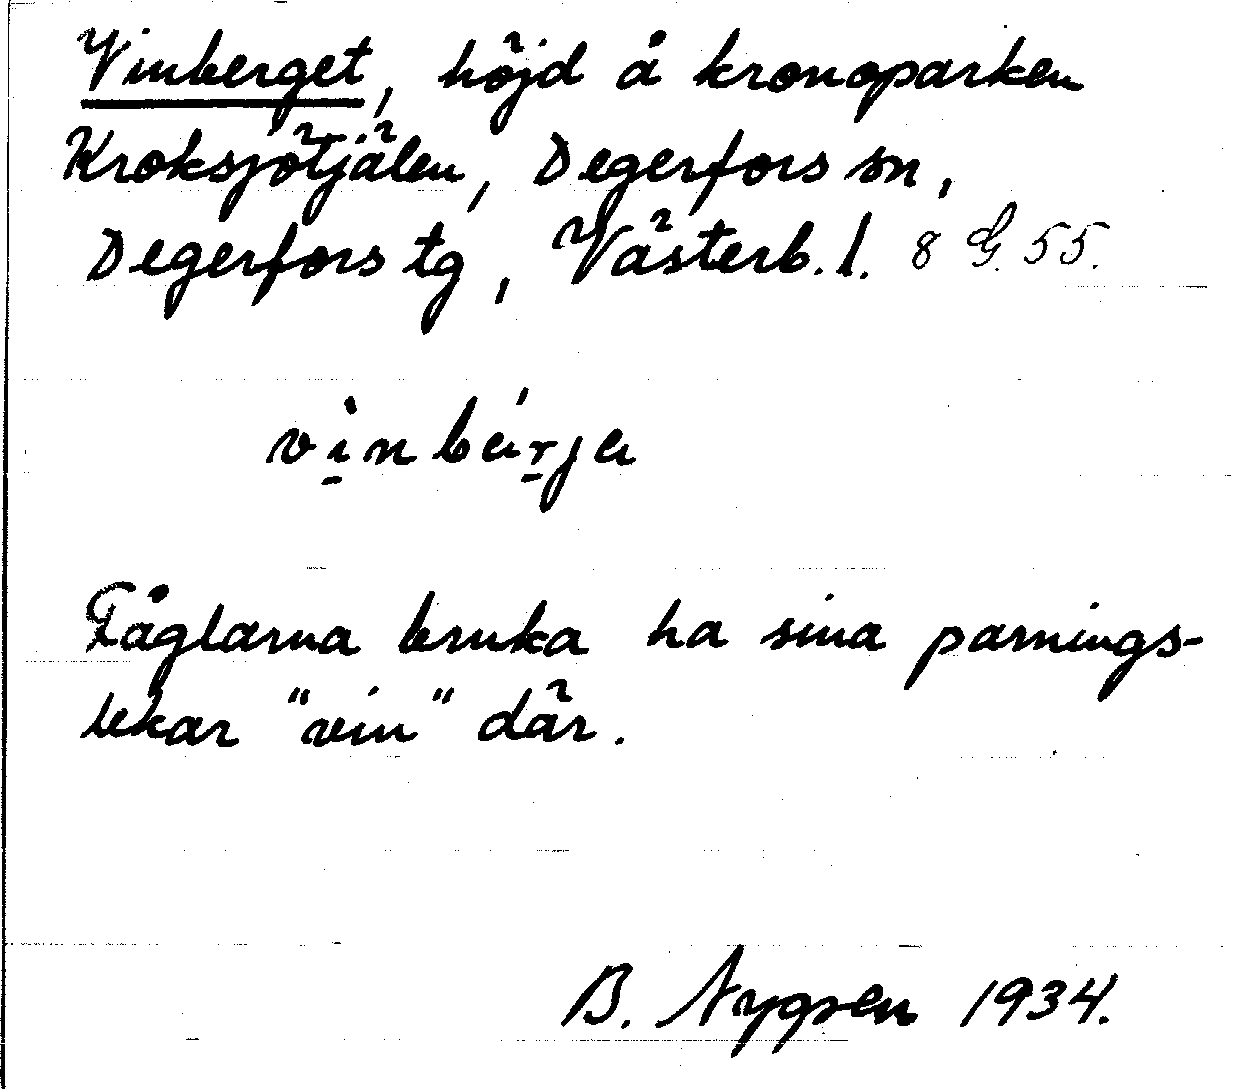 Vinberget, höjd å kronoparken
Kroksjötjälen, Degerfors sn,
Degerfors tg, Västerb. l. 8 G. 55.
vinbärja
Fåglarna bruka ha sina parnings-
lekar "vin" där.
B. Nygren 1934.